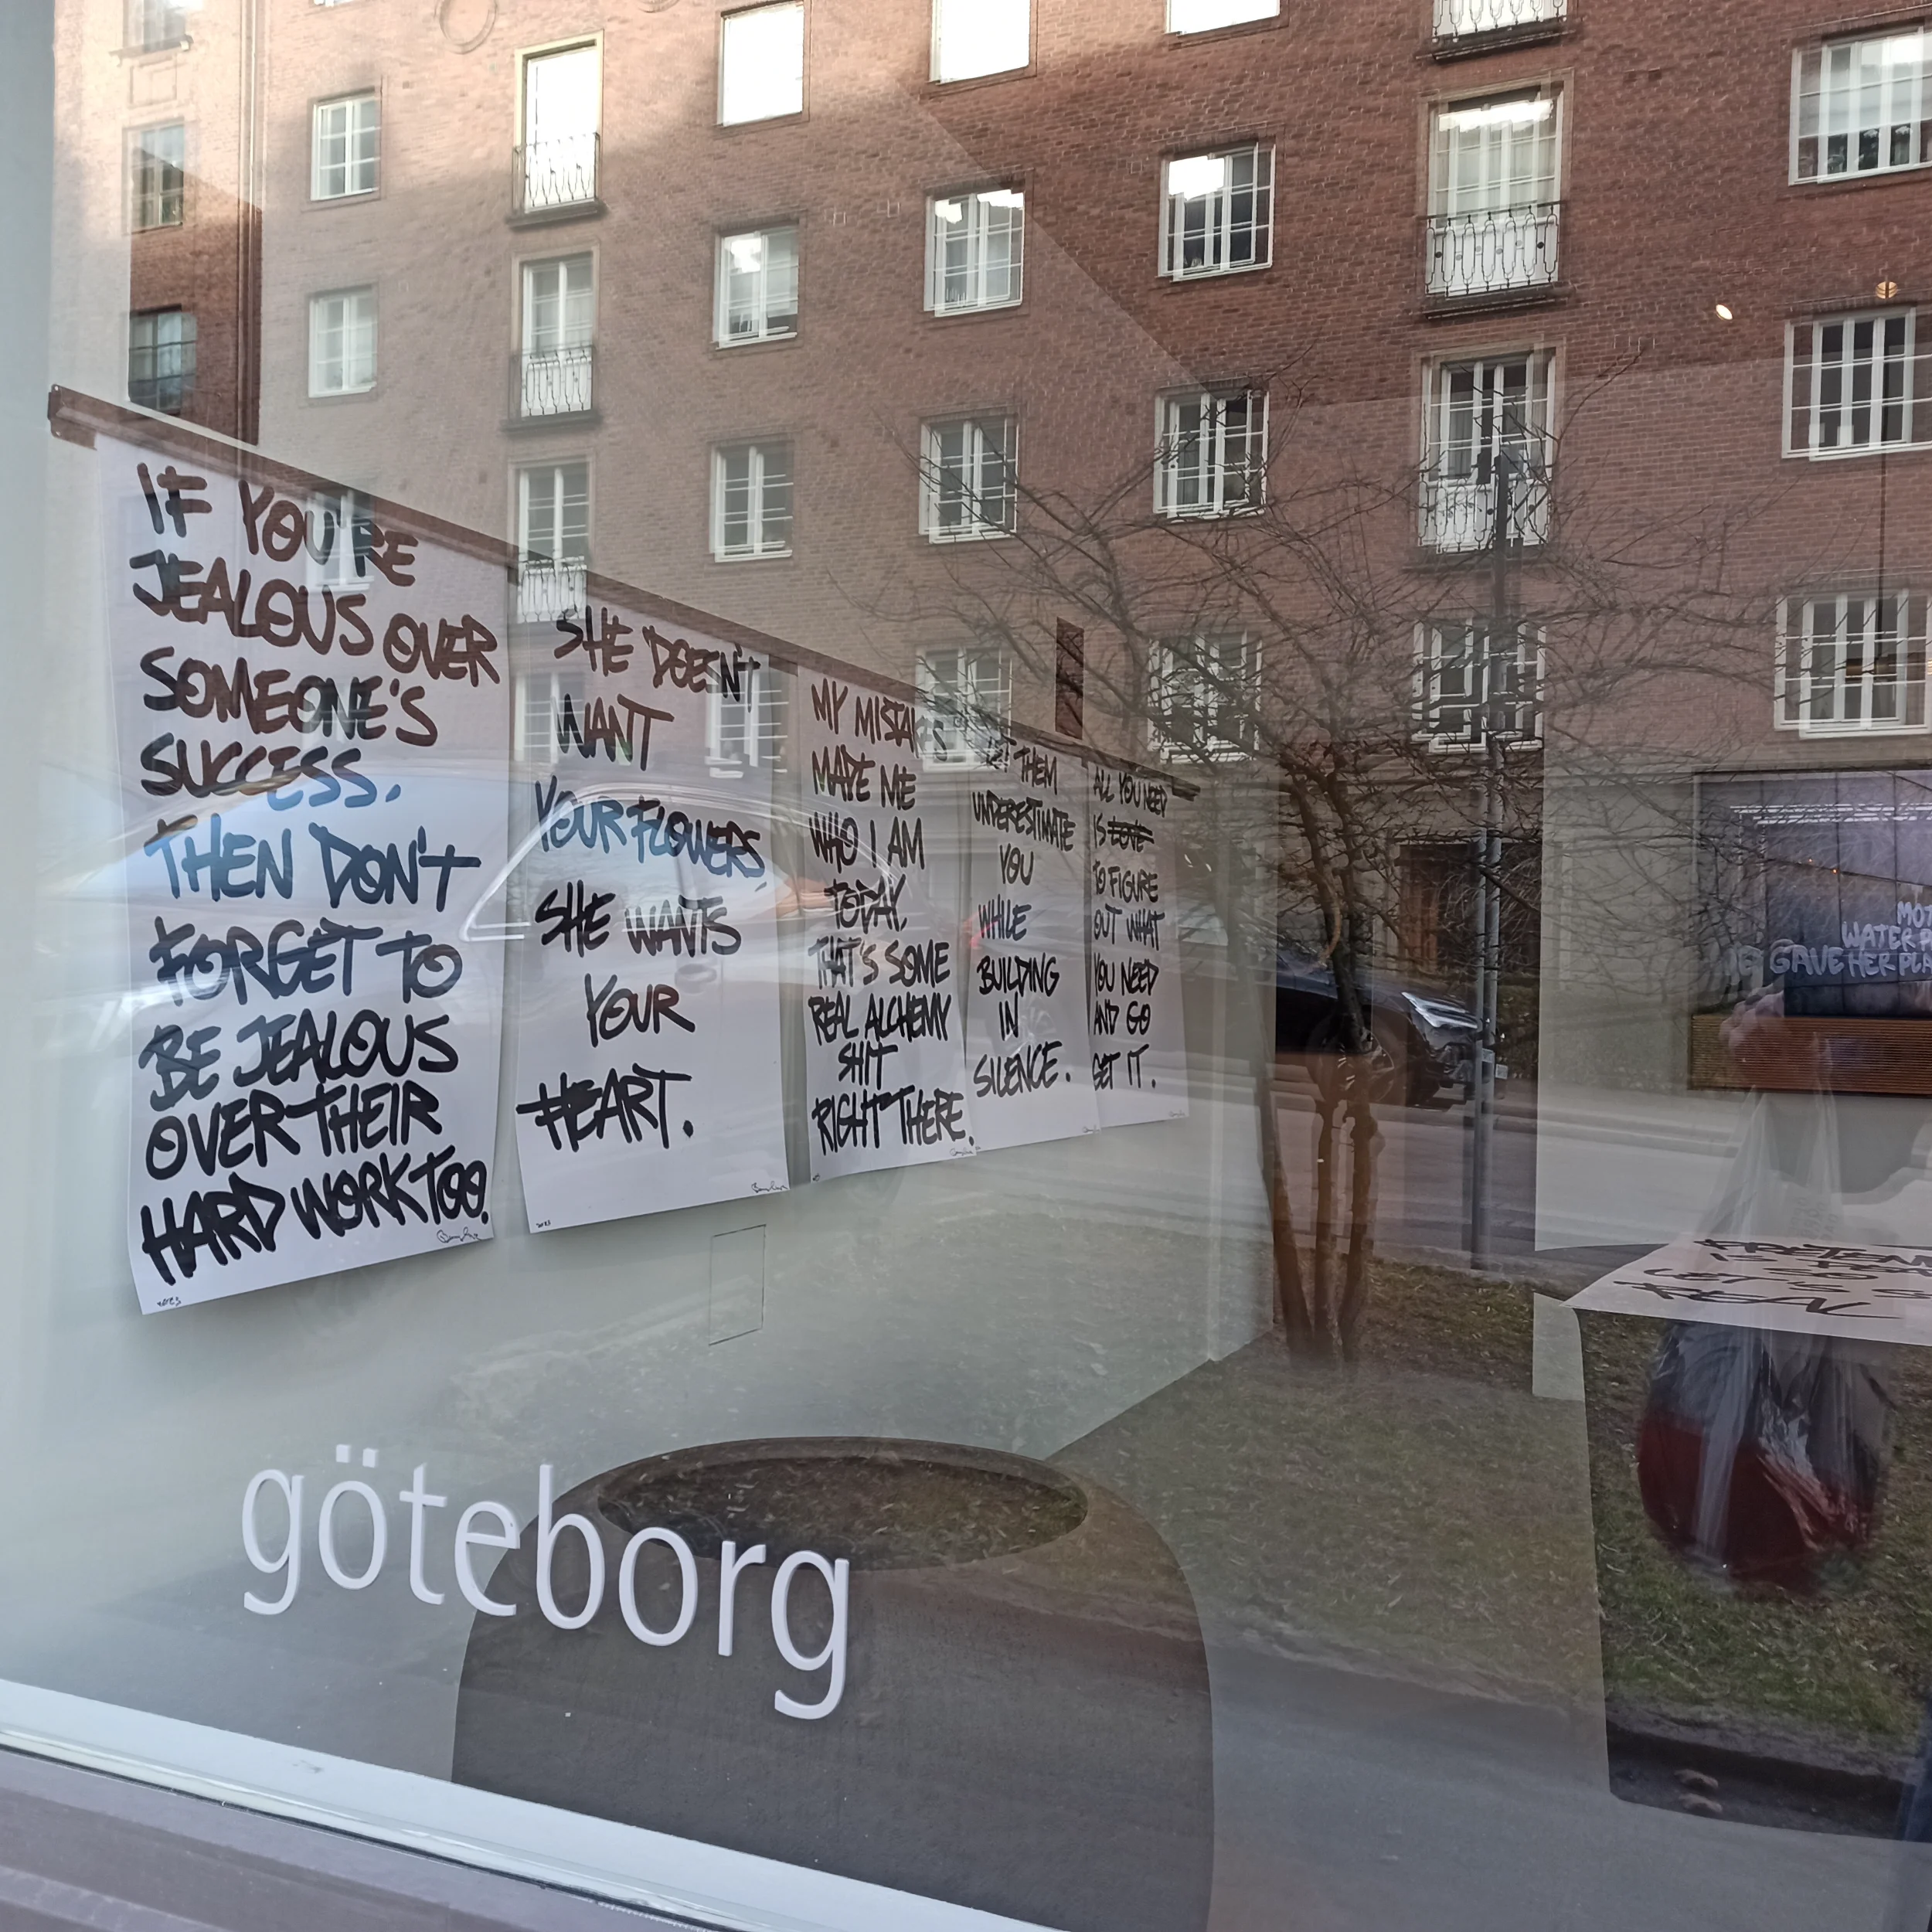 IF YOU'RE
JEALOUS OVER
SOMEONE'S
SUCCESS.
THEN DON'T
FORGET TO
BE JEALOUS
OVER THEIR
HARD WORK TOO.
2023
SHE DOESN'T
WANT
YOUR FLOWERS,
SHE WANTS
YOUR
HEART.
2023
MY MISTAKES
MADE ME
WHO I AM
TODAY.
THAT'S SOME
REAL ALCHEMY
SHIT
RIGHT THERE.
LET THEM
UNDERESTIMATE
YOU
WHILE
BUILDING
IN
SILENCE.
ALL YOU NEED
IS LOVE
TO FIGURE
OUT WHAT
YOU NEED
AND GO
GET IT.
WATER
GAVE HER
göteborg